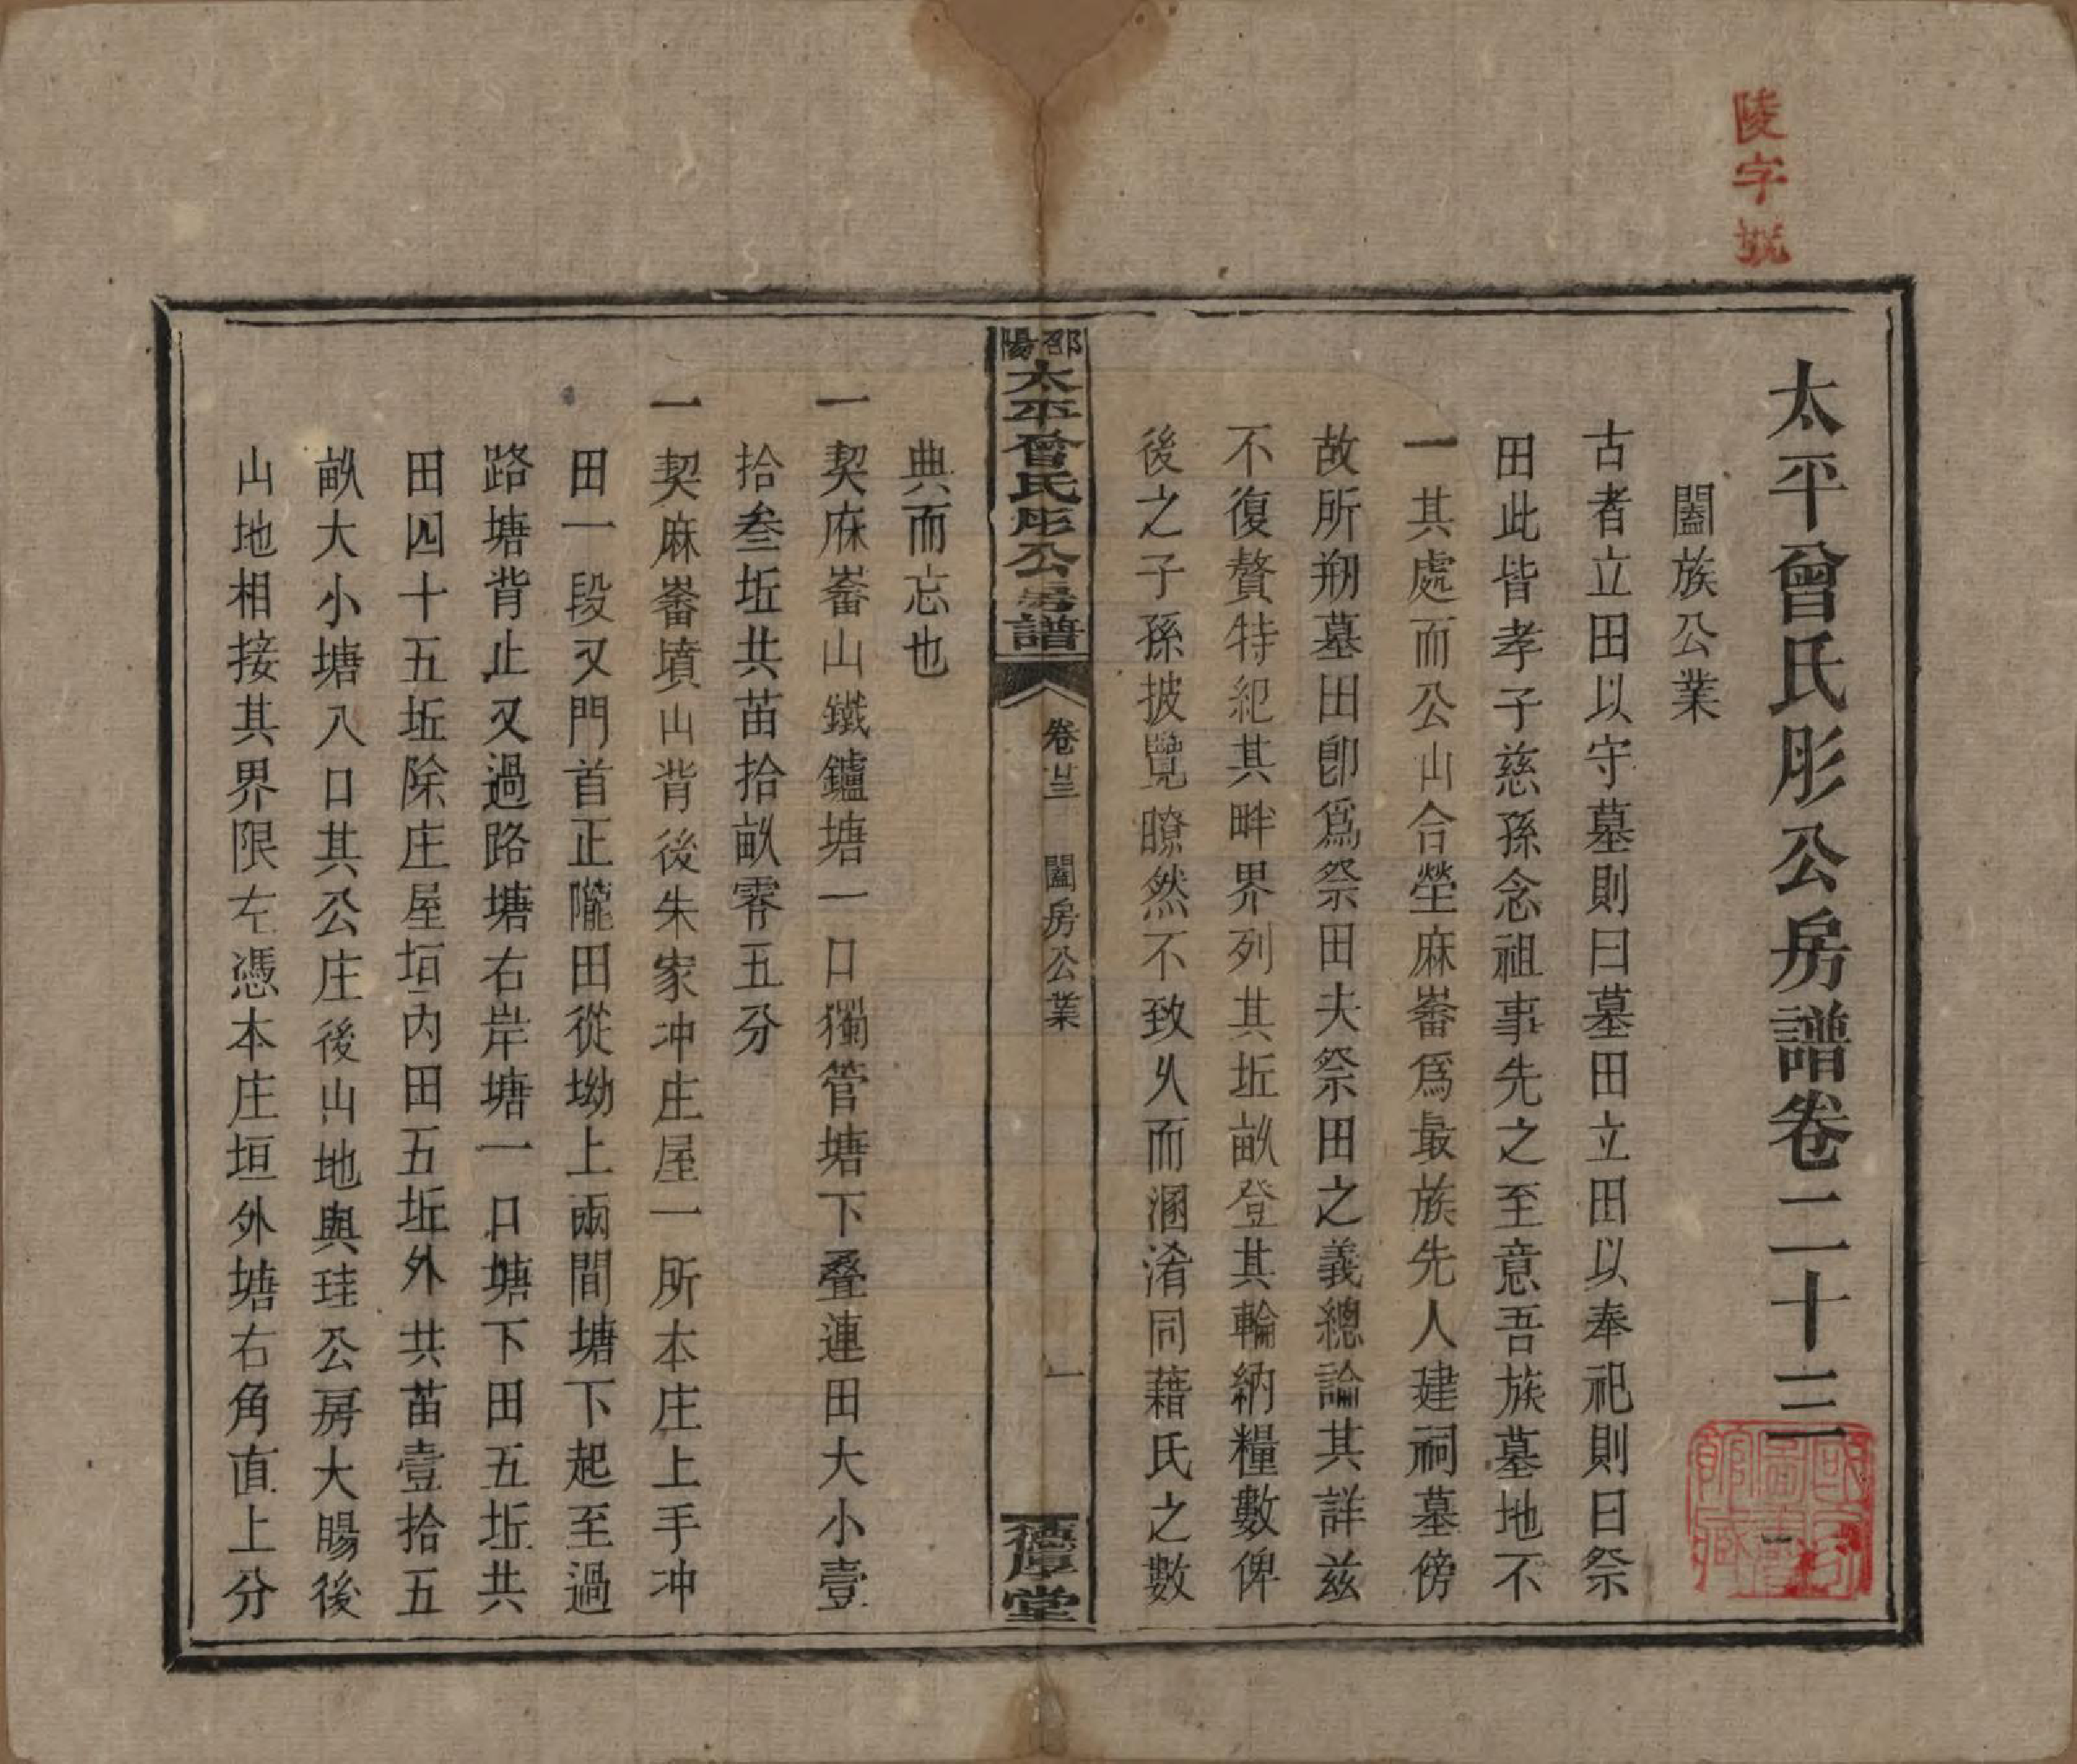 陵字號
太平曾氏彤公房譜卷二十三
闔族公業
古者立田以守墓則曰墓田立田以奉祀則曰祭
田此皆孝子慈孫念祖事先之至意吾族墓地不
一其處而公山合塋麻崙爲最族先人建祠墓傍
故所剏墓田卽爲祭田夫祭田之義總論其詳兹
不復贅特紀其畔界列其坵畝登其輪納糧數俾
後之子孫披覽瞭然不致久而溷淆同藉氏之數
邵陽太平曾氏彤公房譜
卷廿三 闔房公業
一
德厚堂
典而忘也
一契麻崙山鐵鑪塘一口獨管塘下叠連田大小壹
拾叁坵共苗拾畝零五分
一契麻崙墳山背後朱家冲庄屋一所本庄上手冲
田一段又門首正隴田從坳上兩間塘下起至過
路塘背止又過路塘右岸塘一口塘下田五坵共
田四十五坵除庄屋垣內田五坵外共苗壹拾五
畝大小塘八口其公庄後山地與珪公房大腸後
山地相接其界限左憑本庄垣外塘右角直上分
國家圖書館藏